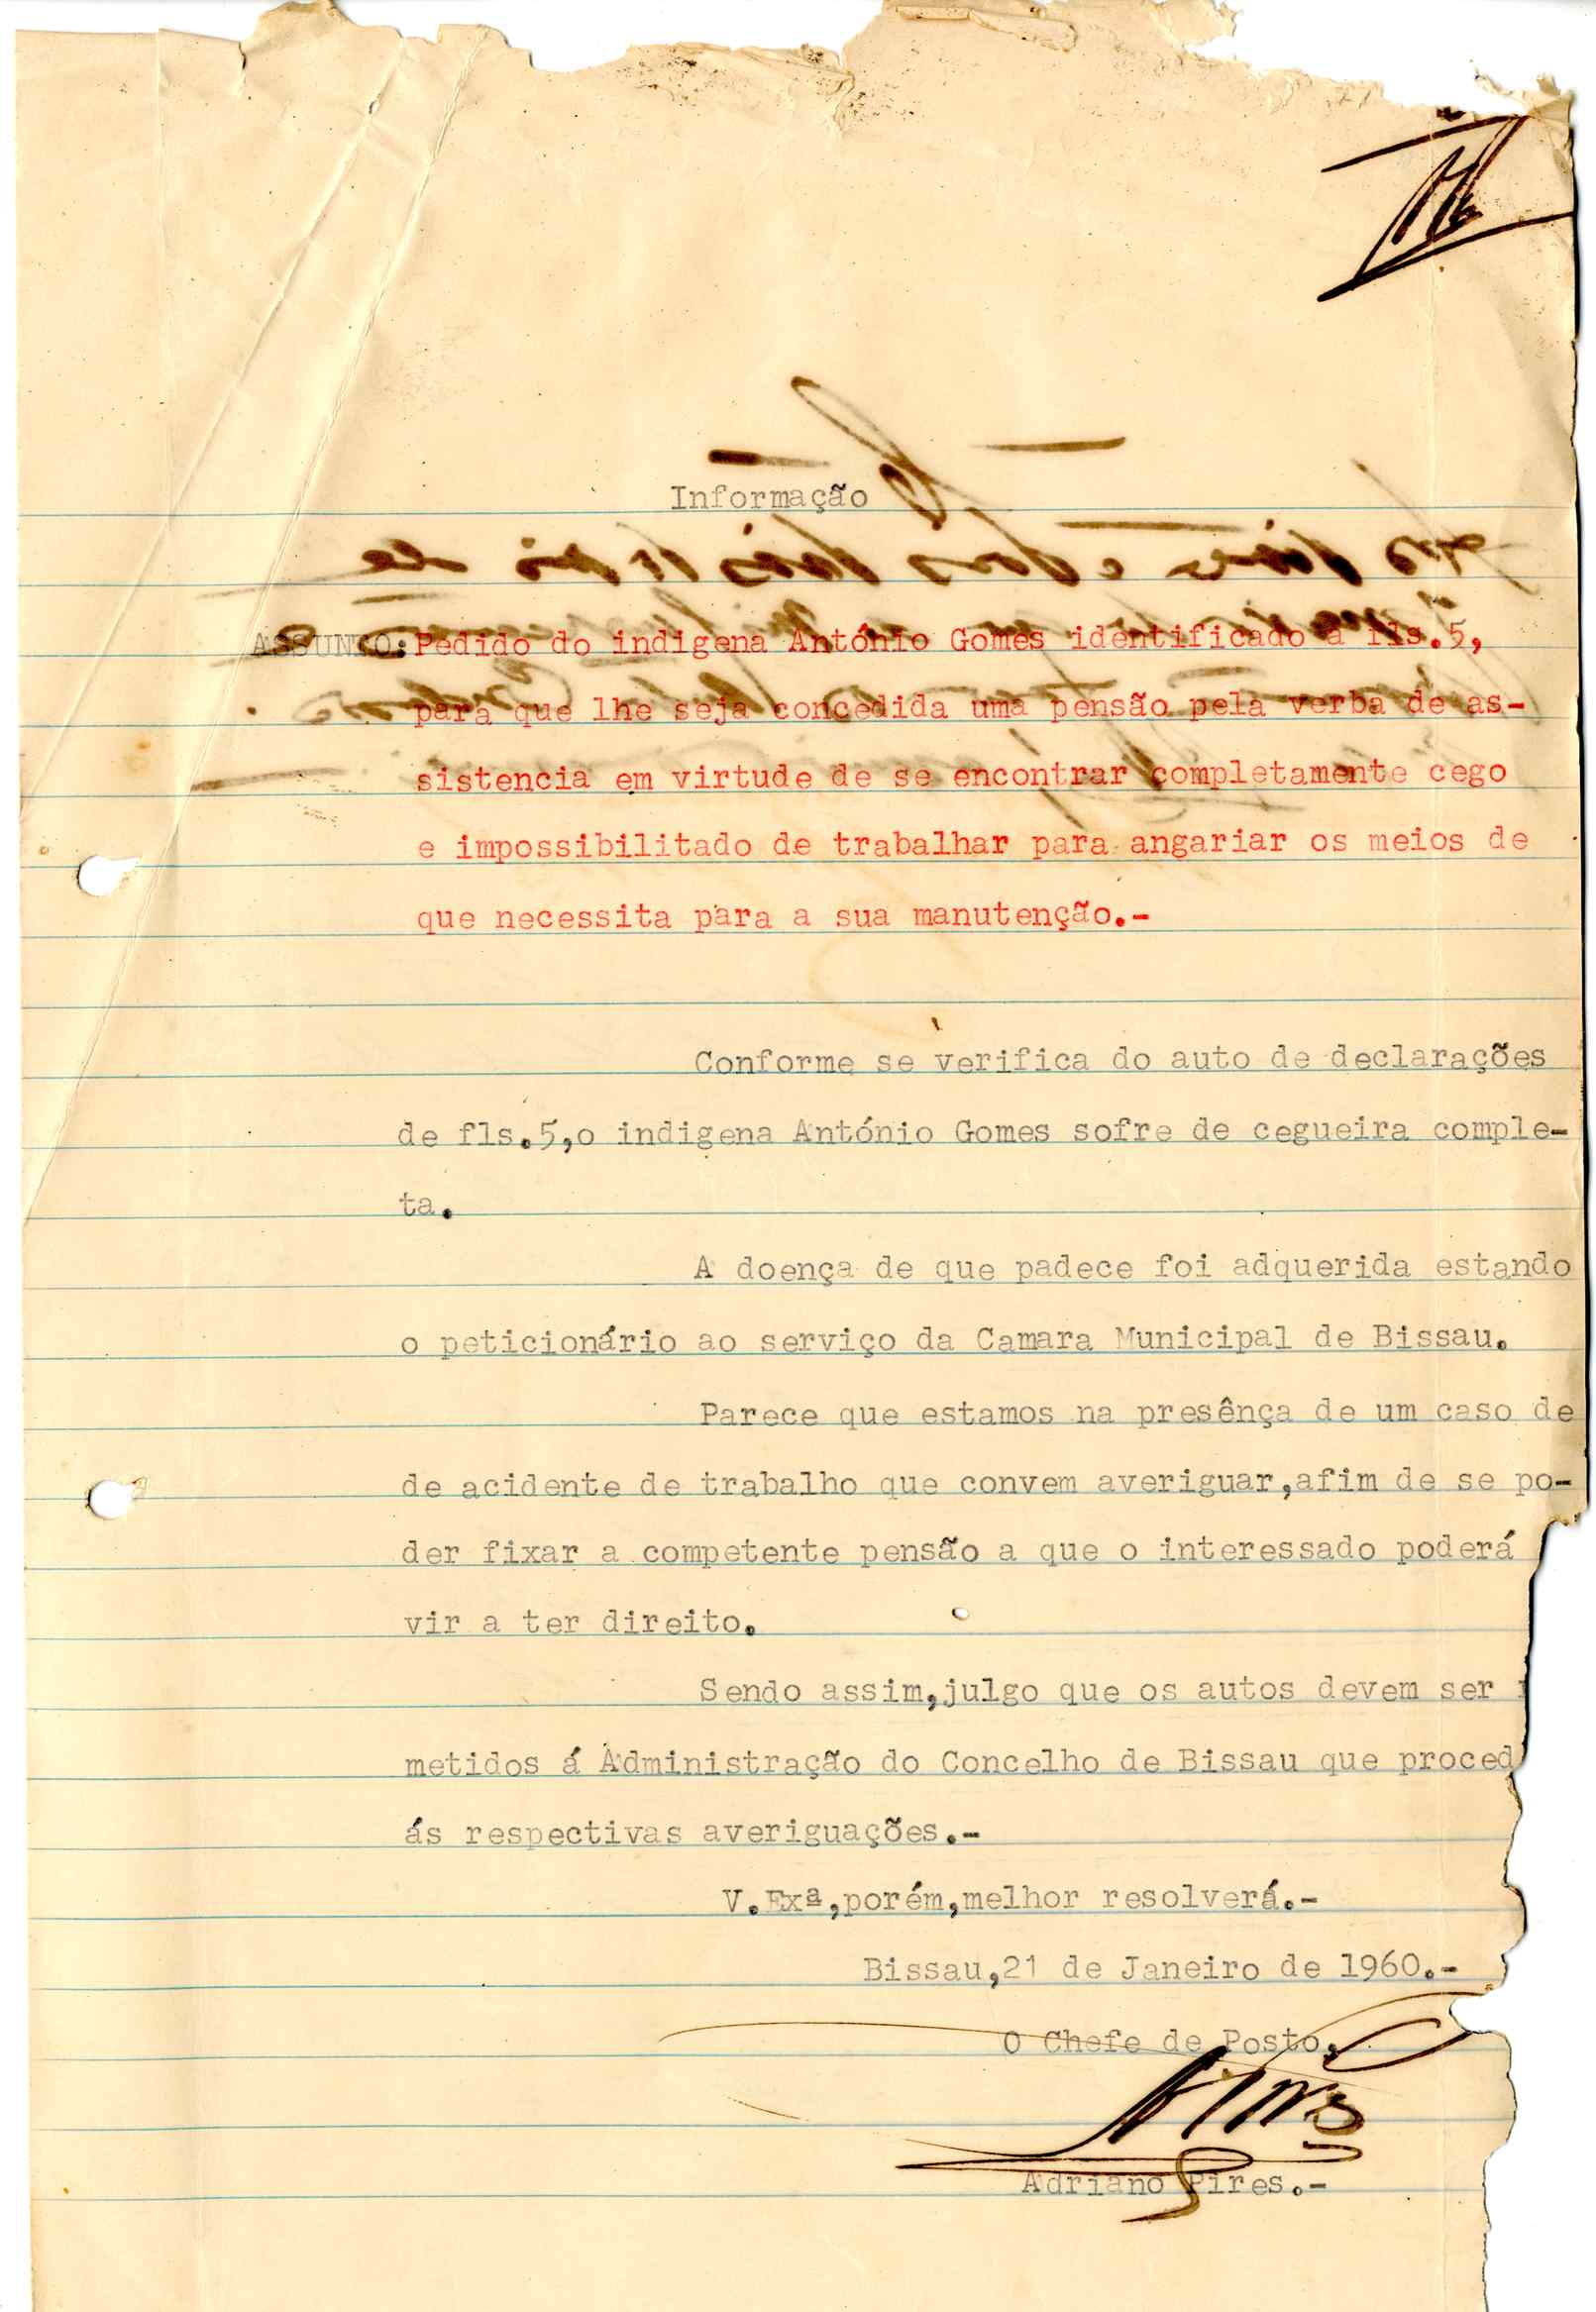 Informação
ASSUNTO: Pedido do indigena António Gomes identificado a fls.5,
para que lhe seja concedida uma pensão pela verba de as-
sistencia em virtude de se encontrar completamente cego
e impossibilitado de trabalhar para angariar os meios de
que necessita para a sua manutenção.-
Conforme se verifica do auto de declarações
de fls.5,o indigena António Gomes sofre de cegueira comple-
ta.
A doença de que padece foi adquerida estando
o peticionário ao serviço da Camara Municipal de Bissau.
Parece que estamos na presênça de um caso de
de acidente de trabalho que convem averiguar,afim de se po-
der fixar a competente pensão a que o interessado poderá
vir a ter direito.
Sendo assim,julgo que os autos devem ser
metidos á Administração do Concelho de Bissau que proced
ás respectivas averiguações.-
V.Exª,porém,melhor resolverá.-
Bissau,21 de Janeiro de 1960.-
O Chefe de Posto,
Adriano Pires.-